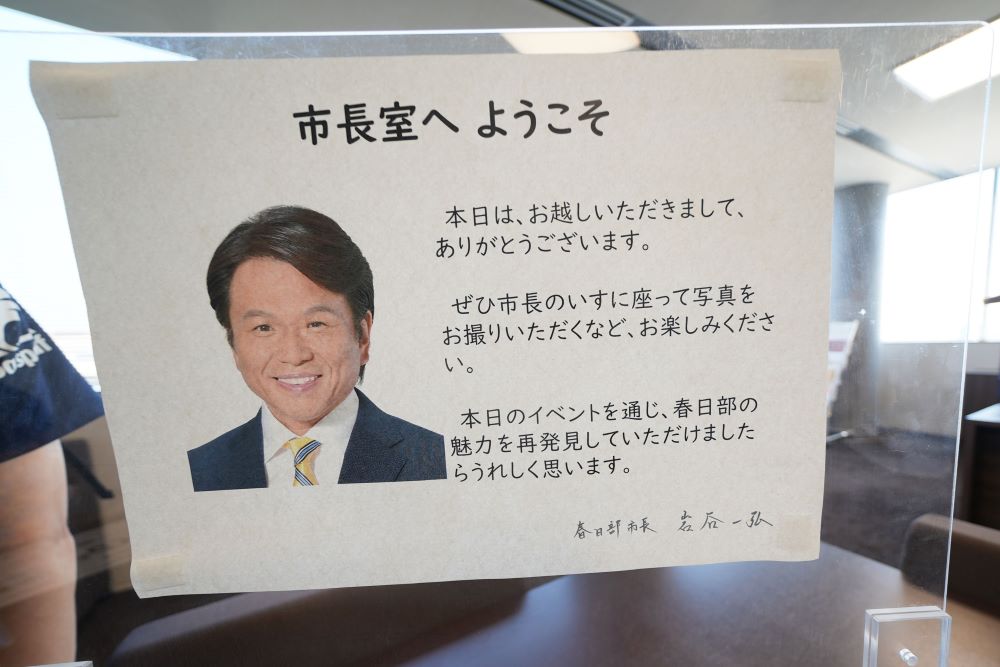 市長室へ ようこそ
本日は、お越しいただきまして、
ありがとうございます。
ぜひ市長のいすに座って写真を
お撮りいただくなど、お楽しみくださ
い。
本日のイベントを通じ、春日部の
魅力を再発見していただけました
らうれしく思います。
春日部市長 岩谷一弘